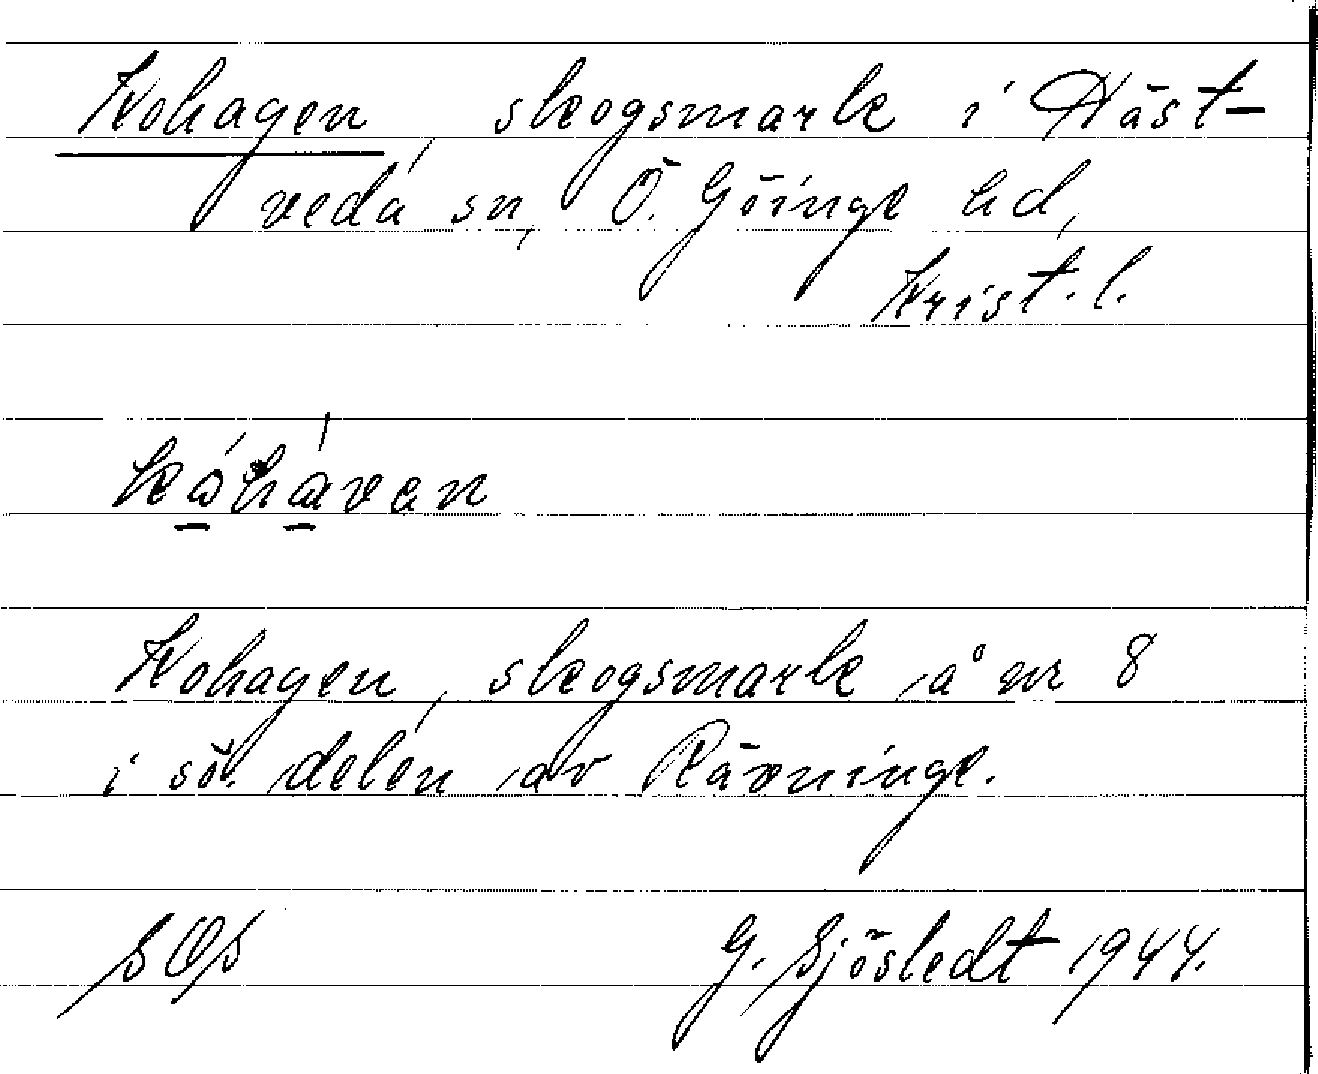 Kohagen, skogsmark i Häst-
veda sn, Ö. Göinge hd,
Krist. l.
kohavan
Kohagen, skogsmark å nr 8
i sö. delen av Rävninge.
SOS
G. Sjöstedt 1944.